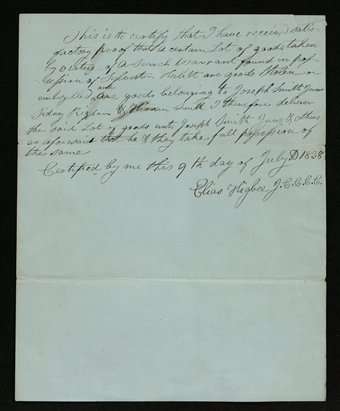 This is to certify that I have received satis-
factory proof that a certain Lot of goods taken
by virtue of a Search warrant found in pos-
session of Sylvester Hulett are goods Stolen or
embezzled and are goods belonging to Joseph Smith Junr
Sidney Rigdon & Hiram Smith I therefore deliver
the said Lot of goods unto Joseph Smith Junr & others
as aforesaid that he & they take full possession of
the same
Certified by me this 9th day of July AD 1838
Elias Higbee J.C.C.C.C.